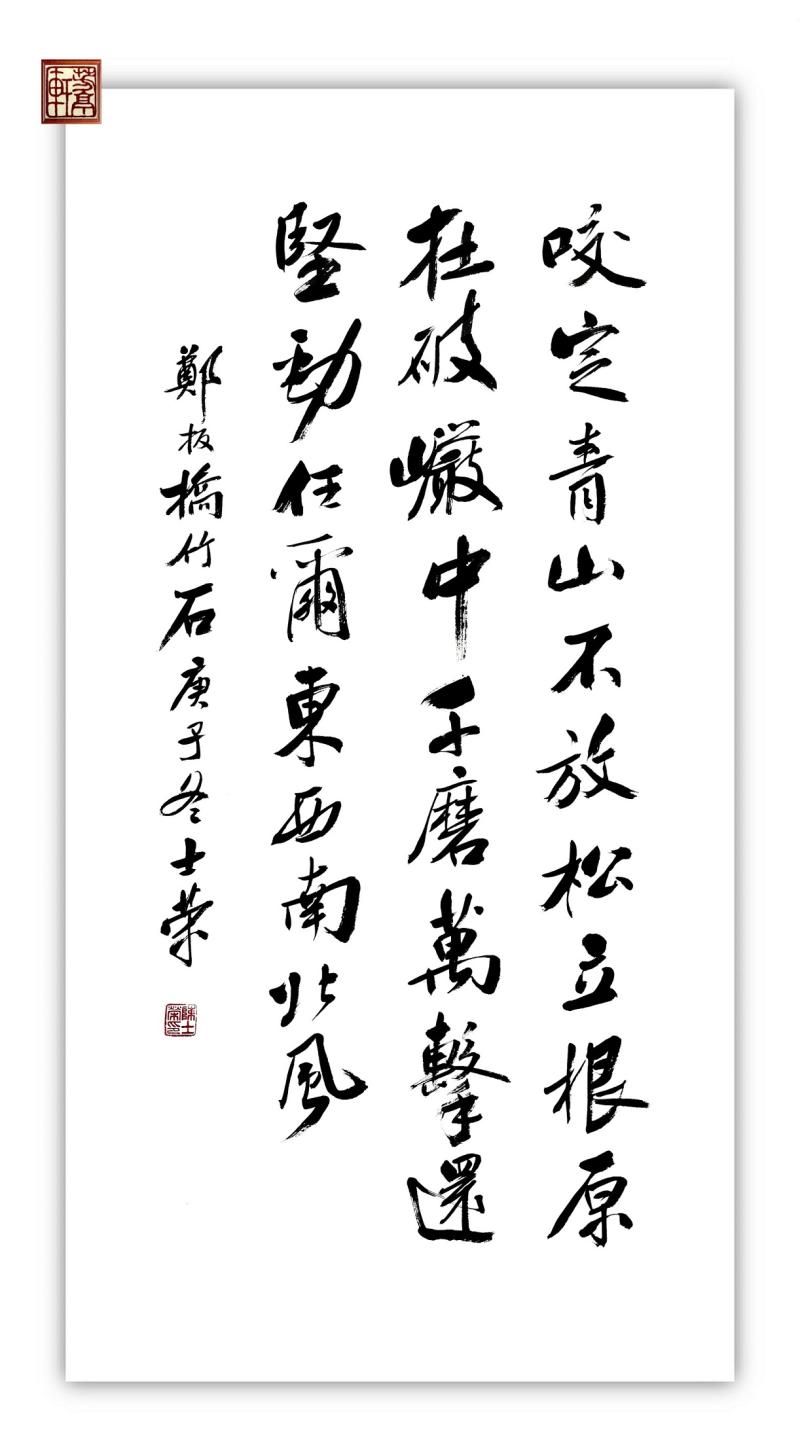 咬定青山不放松立根原
在破巗中千磨萬擊還
堅勁任爾東西南北風
鄭板橋竹石庚子冬士荣
陳士榮印